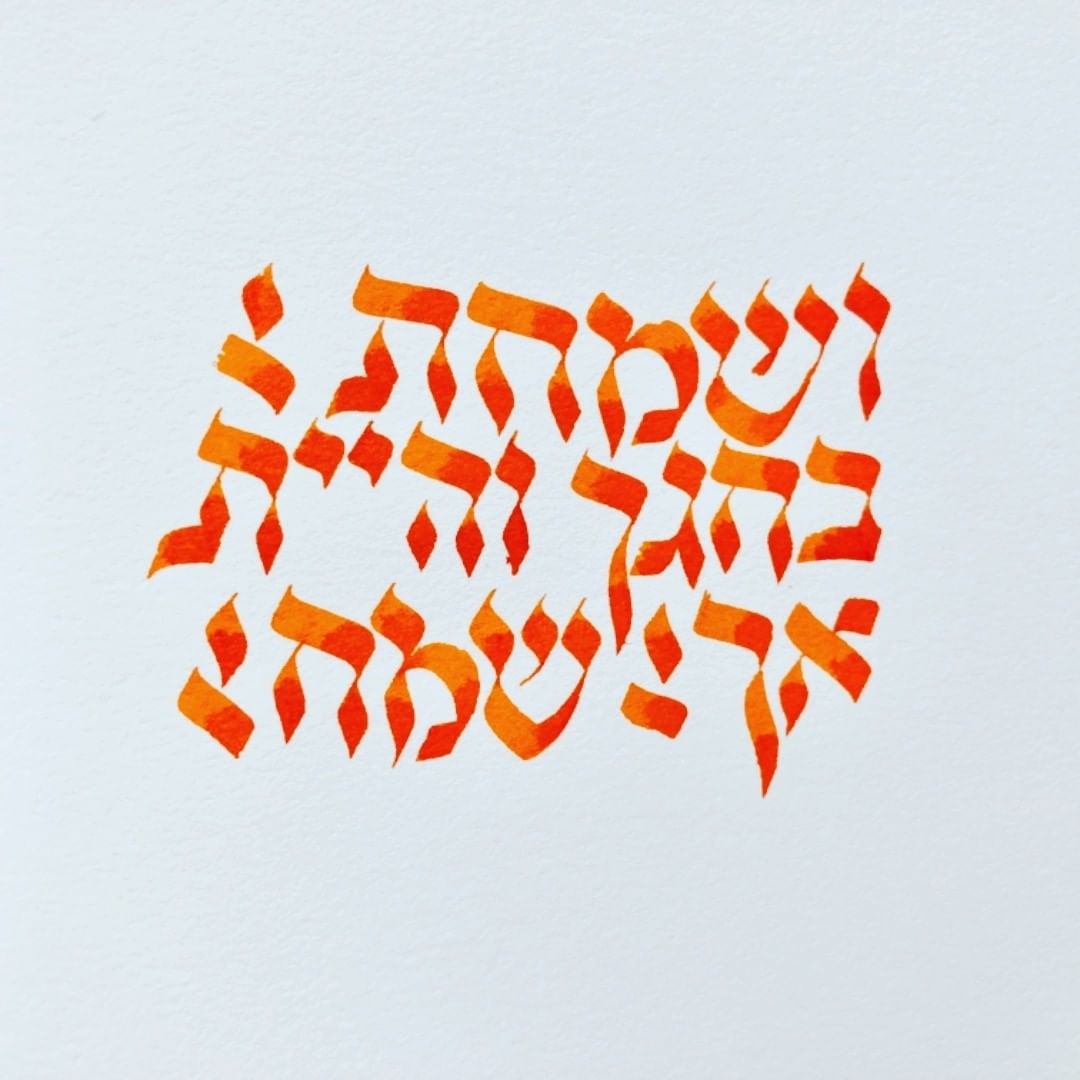 ושמחת
בחגך והיית
אך שמח